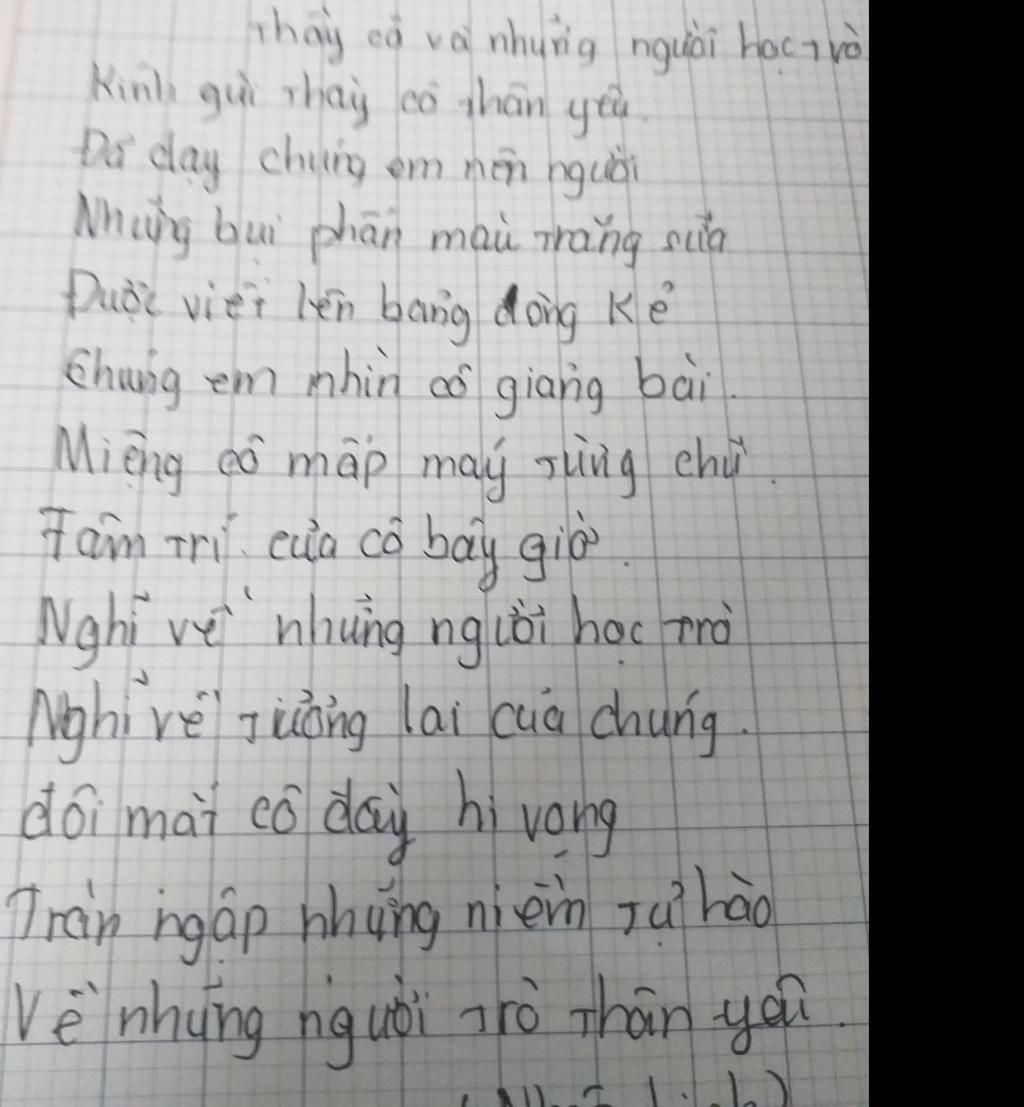 Thầy cô và những người học trò
Kính gửi thầy cô thân yêu.
Đã dạy chúng em nên người
Những bụi phấn màu trắng sữa
Được viết lên bảng dòng kẻ
Chúng em nhìn cô giảng bài.
Miệng cô mấp máy từng chữ.
Tâm trí của cô bây giờ.
Nghĩ về những người học trò
Nghĩ về tương lai của chúng.
đôi mắt cô đầy hi vọng
Tràn ngập những niềm tự hào
Về những người trò thân yêu.